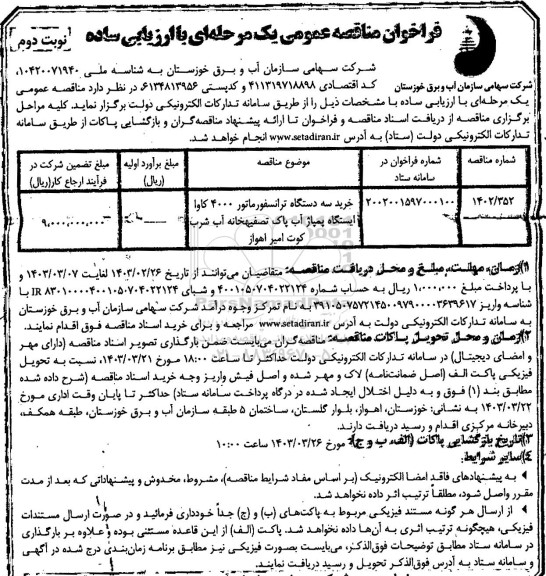 فراخوان مناقصه عمومی یک مرحله‌ای با ارزیابی ساده
نوبت دوم
شرکت سهامی سازمان آب و برق خوزستان
شرکت سهامی سازمان آب و برق خوزستان به شناسه ملی ۱۰۴۲۰۰۷۱۹۴۰،
کد اقتصادی ۴۱۱۳۱۹۷۱۸۸۹۸ و کدپستی ۶۱۳۴۸۱۳۹۵۶ در نظر دارد مناقصه عمومی
یک مرحله‌ای با ارزیابی ساده با مشخصات ذیل را از طریق سامانه تدارکات الکترونیکی دولت برگزار نماید. کلیه مراحل
برگزاری مناقصه از دریافت اسناد مناقصه و فراخوان تا ارائه پیشنهاد مناقصه‌گران و بازگشایی پاکات از طریق سامانه
تدارکات الکترونیکی دولت (ستاد) به آدرس www.setadiran.ir انجام خواهد شد.
شماره مناقصه
شماره فراخوان در سامانه ستاد
موضوع مناقصه
مبلغ برآورد اولیه (ریال)
مبلغ تضمین شرکت در فرآیند ارجاع کار(ریال)
۱۴۰۲/۳۵۲
۲۰۰۲۰۰۱۵۹۷۰۰۰۱۰۰
خرید سه دستگاه ترانسفورماتور ۴۰۰۰ کاوا
ایستگاه پمپاژ آب پاک تصفیه‌خانه آب شرب
کوت امیر اهواز
ـــــ
۹،۰۰۰،۰۰۰،۰۰۰
۱)زمان، مهلت، مبلغ و محل دریافت مناقصه: متقاضیان می‌توانند از تاریخ ۱۴۰۳/۰۲/۲۶ لغایت ۱۴۰۳/۰۳/۰۷ و
با پرداخت مبلغ ۱،۰۰۰،۰۰۰ ریال به حساب شماره ۴۰۰۱۰۵۰۷۰۴۰۲۲۱۲۴ و شبای IR ۸۳۰۱۰۰۰۰۴۰۰۱۰۵۰۷۰۴۰۲۲۱۲۴ با
شناسه واریز ۳۹۱۰۵۰۷۵۷۲۱۴۵۰۰۹۷۹۰۰۰۰۳۶۳۹۶۱۷ به نام تمرکز وجوه درآمد شرکت سهامی سازمان آب و برق خوزستان
به سامانه تدارکات الکترونیکی دولت به آدرس www.setadiran.ir مراجعه و برای خرید اسناد مناقصه فوق اقدام نمایند.
۲)زمان و محل تحویل پاکات مناقصه: مناقصه‌گران می‌بایست ضمن بارگذاری تصویر اسناد مناقصه (دارای مهر
و امضای دیجیتال) در سامانه تدارکات الکترونیکی دولت حداکثر تا ساعت ۱۸:۰۰ مورخ ۱۴۰۳/۰۳/۲۱، نسبت به تحویل
فیزیکی پاکت الف (اصل ضمانت‌نامه) لاک و مهر شده و اصل فیش واریز وجه خرید اسناد مناقصه (شرح داده شده
مطابق بند (۱) فوق و به دلیل اختلال ایجاد شده در درگاه پرداخت سامانه ستاد) حداکثر تا پایان وقت اداری مورخ
۱۴۰۳/۰۳/۲۲ به نشانی: خوزستان، اهواز، بلوار گلستان، ساختمان ۵ طبقه سازمان آب و برق خوزستان، طبقه همکف،
دبیرخانه مرکزی اقدام و رسید دریافت دارند.
۳)تاریخ بازگشایی پاکات (الف، ب و ج): مورخ ۱۴۰۳/۰۳/۲۶ ساعت ۱۰:۰۰
۴)سایر شرایط:
- به پیشنهادهای فاقد امضا الکترونیک (بر اساس مفاد شرایط مناقصه)، مشروط، مخدوش و پیشنهاداتی که بعد از مدت
مقرر واصل شود، مطلقاً ترتیب اثر داده نخواهد شد.
- از ارسال هر گونه مستند فیزیکی مربوط به پاکت‌های (ب) و (ج) جداً خودداری فرمائید و در صورت ارسال مستندات
فیزیکی، هیچگونه ترتیب اثری به آن‌ها داده نخواهد شد. پاکت (الف) از این قاعده مستثنی بوده و علاوه بر بارگذاری
در سامانه ستاد مطابق توضیحات فوق‌الذکر، می‌بایست بصورت فیزیکی نیز مطابق برنامه زمان‌بندی درج شده در آگهی
و سامانه ستاد به آدرس فوق‌الذکر تحویل و رسید دریافت نمایند.